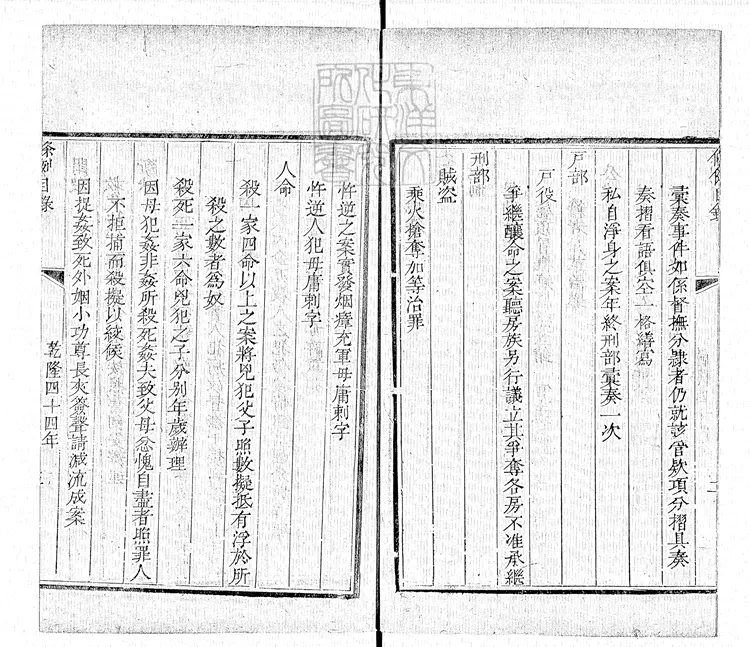 彙奏事件如係督撫分隸者仍就該管欵項分摺具奏
奏摺看語俱空一格繕寫
私自淨身之案年終刑部彙奏一次
戸部
戸役
爭繼釀命之案聽房族另行議立其爭奪各房不准承繼
刑部
賊盗
乘火搶奪加等治罪
忤逆之案實發烟瘴充軍毋庸刺字
忤逆人犯毋庸刺字
人命
殺一家四命以上之案將兇犯父子照數擬抵有浮於所
殺之數者爲奴
殺死一家六命兇犯之子分别年歲辦理
因母犯姦非姦所殺死姦夫致父母忿愧自盡者照罪人
不拒捕而殺擬以絞候
因捉姦致死外姻小功尊長夾簽聲請減流成案
條例目錄
乾隆四十四年